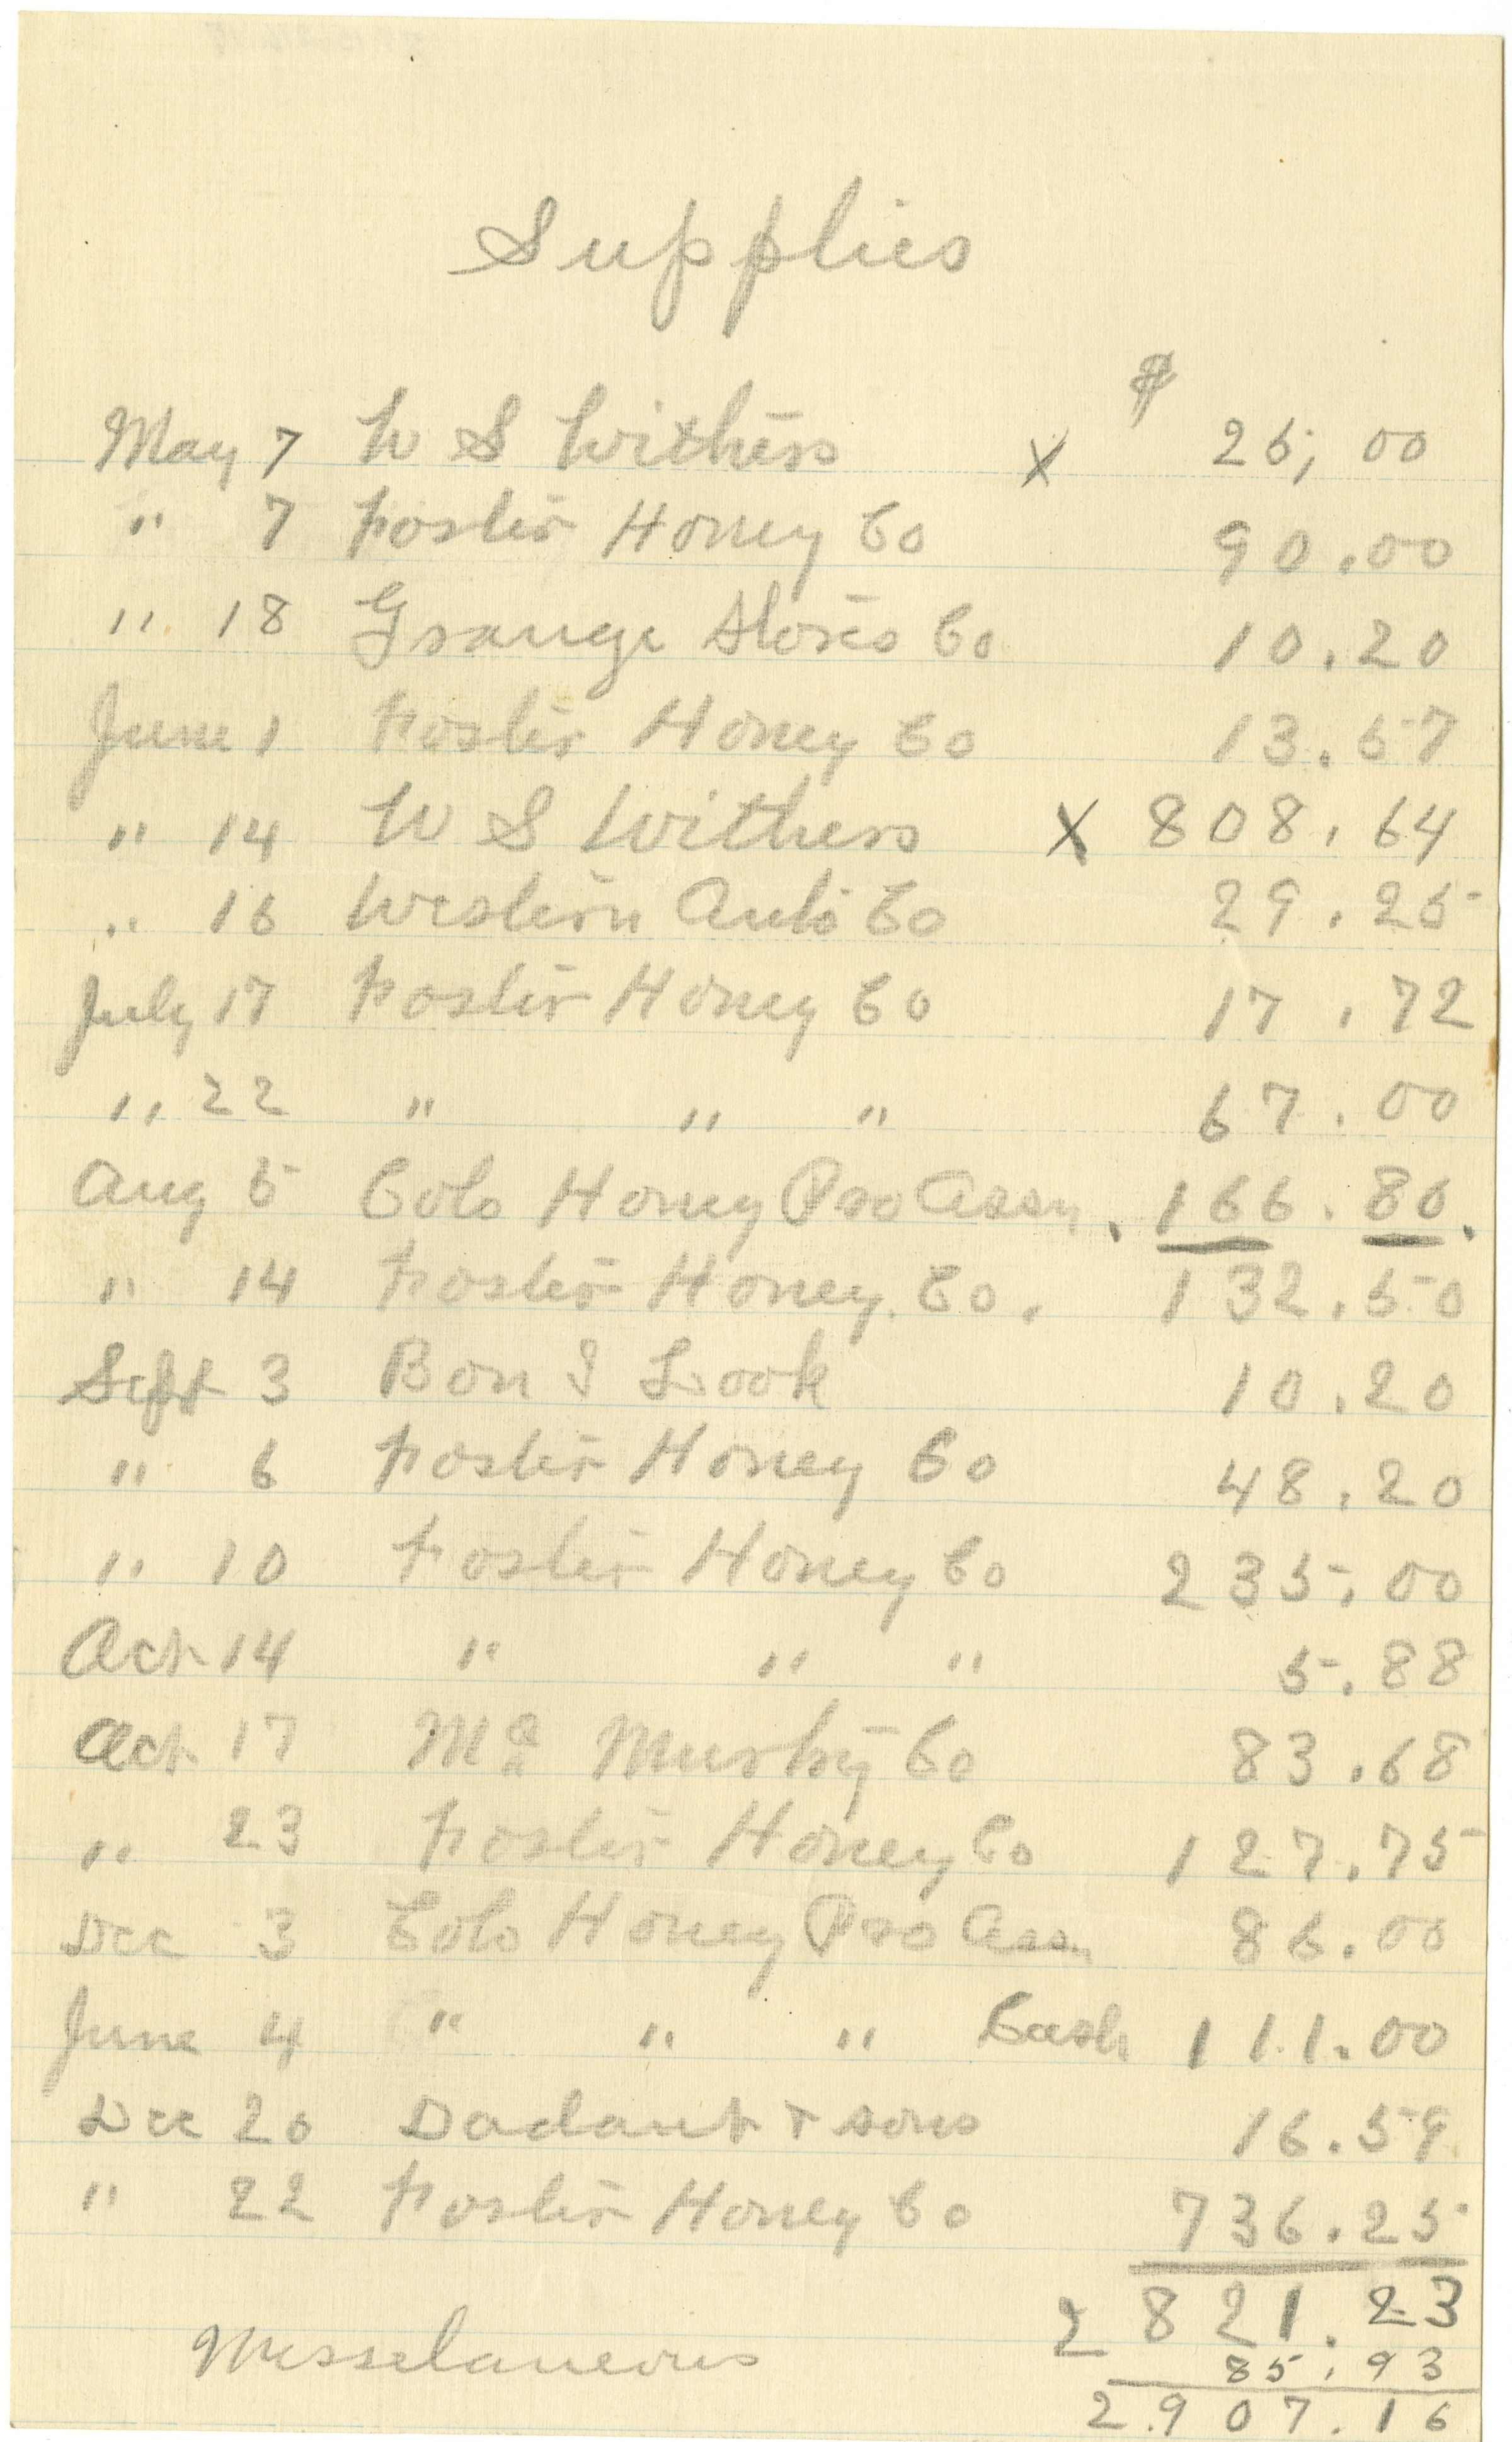 Supplies
$
May 7 W S Withers x 25.00
" 7 Foster Honey Co 90.00
" 18 Grange Stores Co 10.20
June 1 Foster Honey Co 13.57
" 14 W S Withers x 808.64
" 16 Western Auto Co 29.25
July 17 Foster Honey Co 17.72
" 22 " " " 67.00
Aug 5 Colo Honey Pro Assn. 166.80.
" 14 Foster Honey. Co. 132.50
Sept 3 Bon I Look 10.20
" 6 Foster Honey Co 48.20
" 10 Foster Honey Co 235.00
Oct 14 " " " 5.88
Oct 17 Mc Murtry Co 83.68
" 23 Foster Honey Co 127.75
Dec 3 Colo Honey Pro Assn 86.00
June 4 " " " Cash 111.00
Dec 20 Dadant & sons 16.59
" 22 Foster Honey Co 736.25
2821.23
Messelaneous 85.93
2.907.16